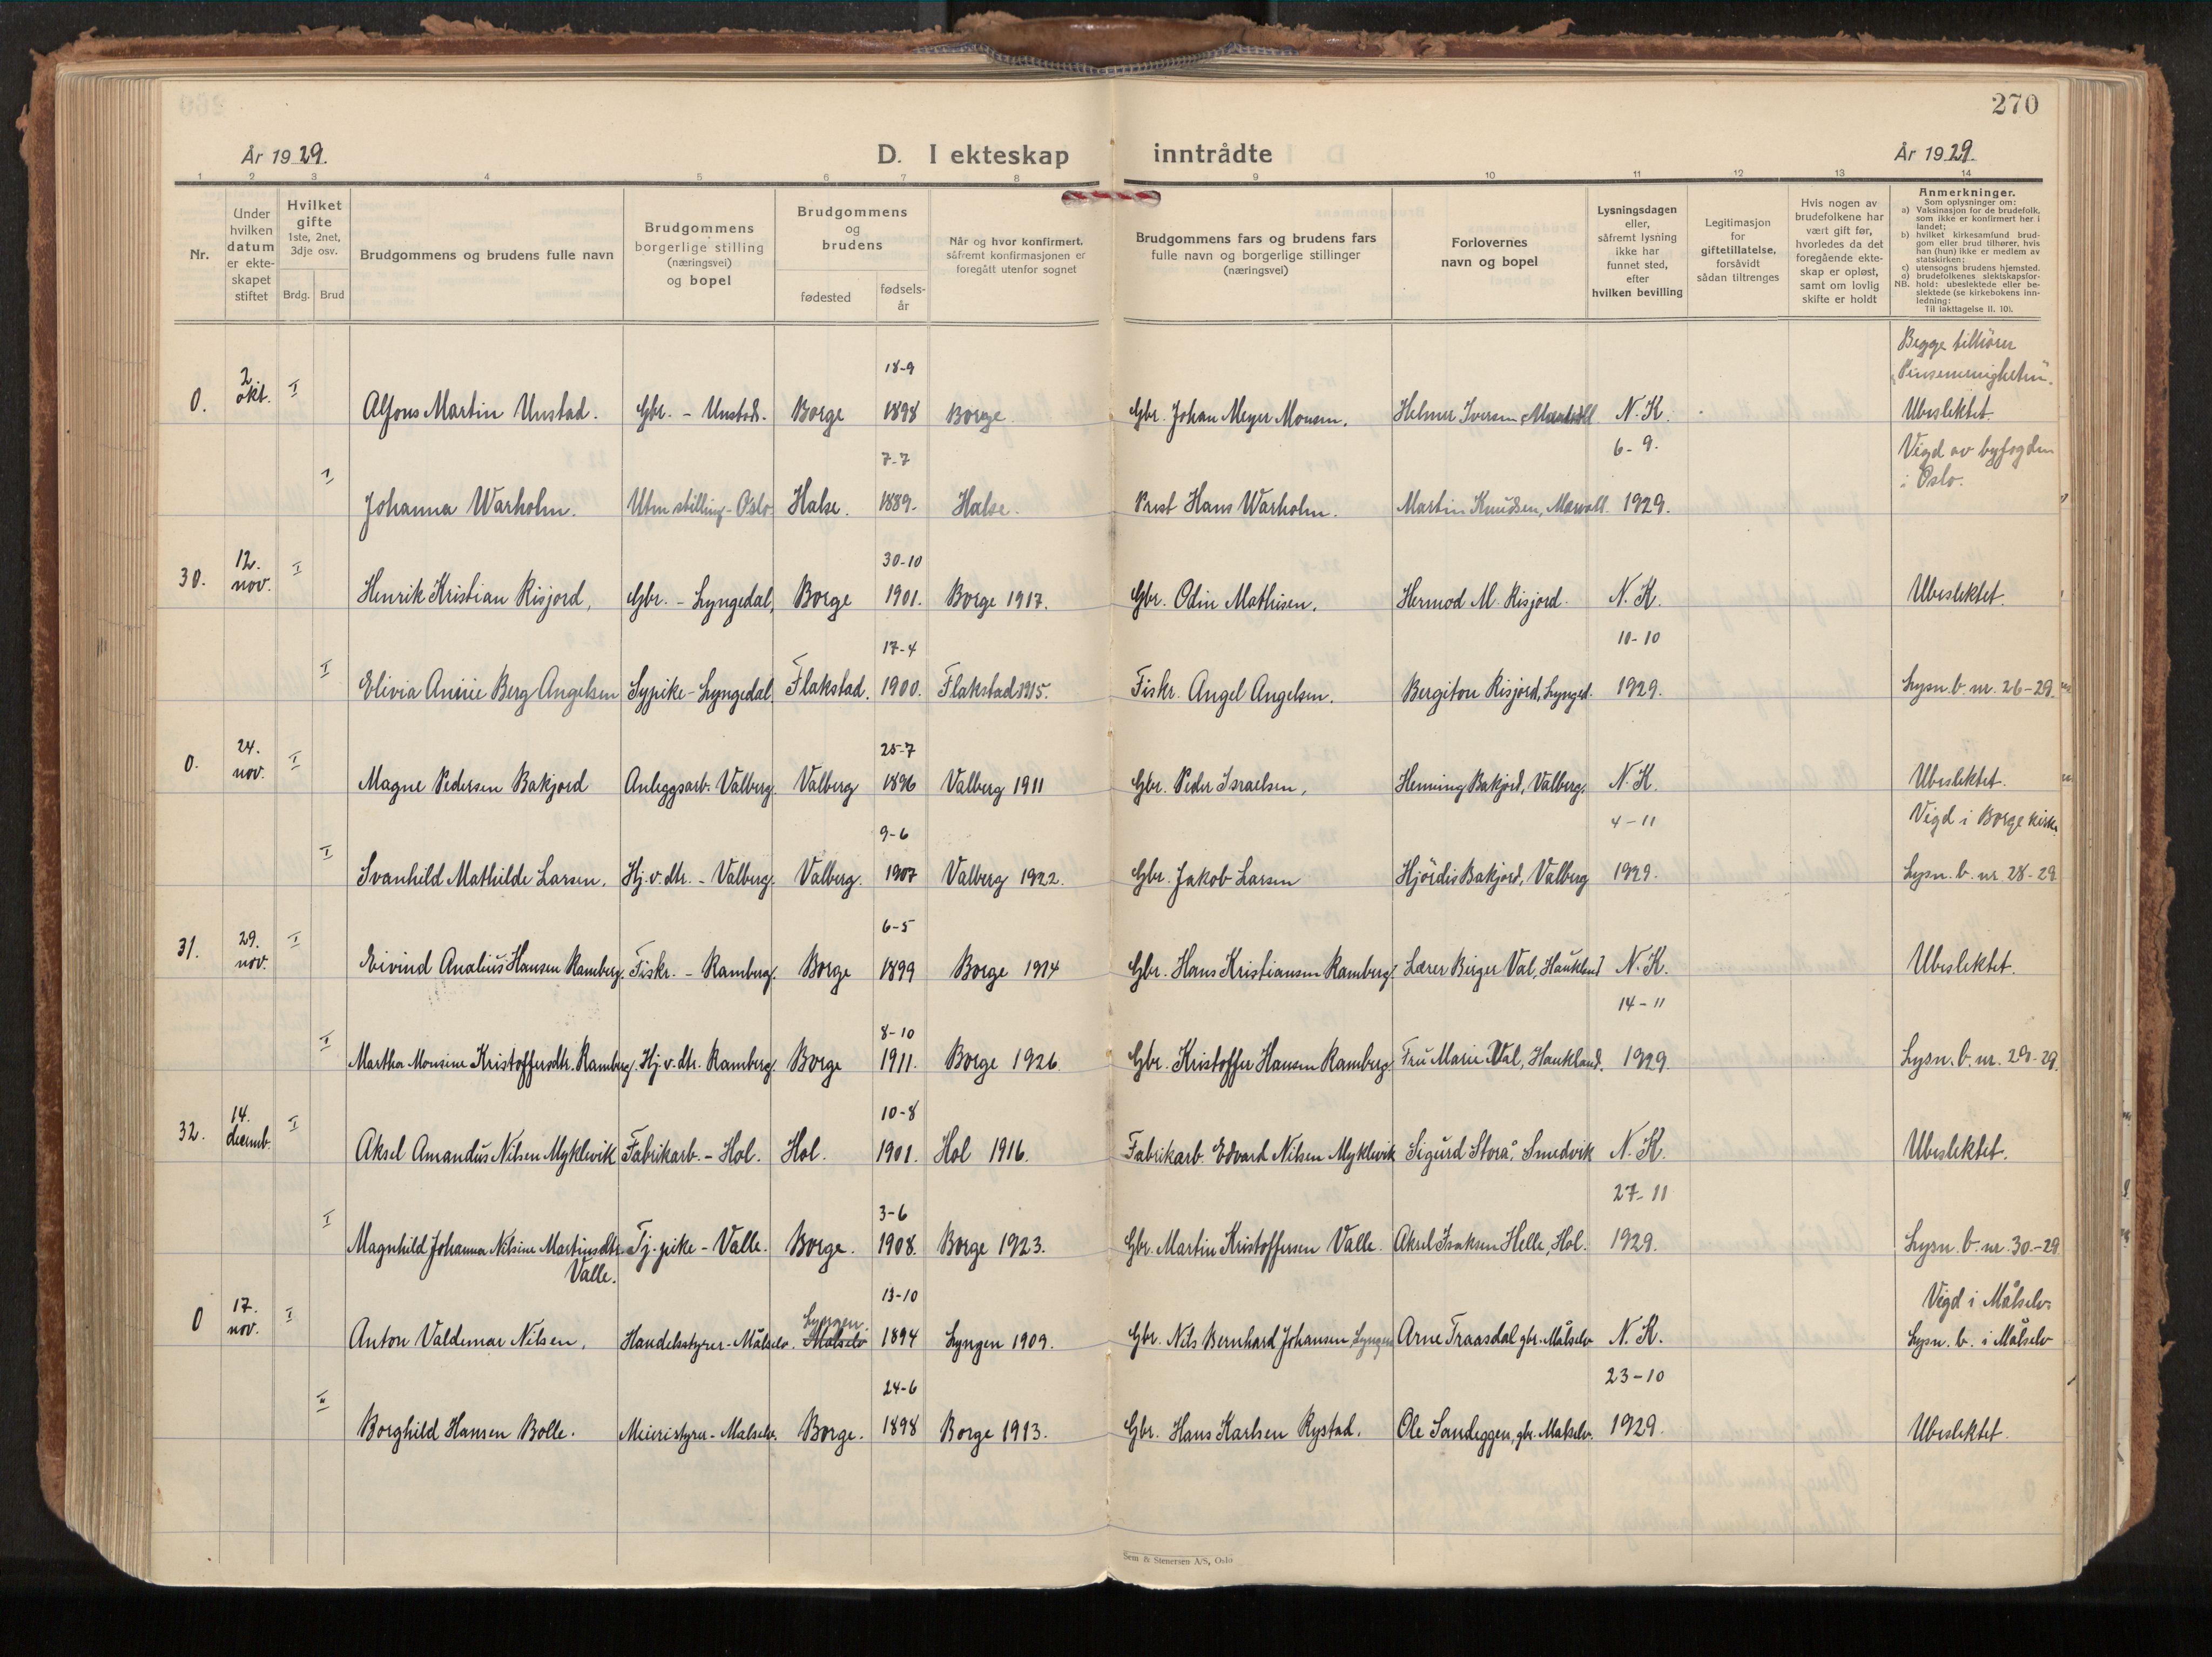 270
År 1929. D. I ekteskap inntrådte År 1929.
1 2 3 4 5 6 7 8 9 10 11 12 13 14
Nr.
Under
hvilken
datum
er ekte-
skapet
stiftet
Hvilket
gifte
1ste, 2net,
3dje osv.
Brdg. Brud
Brudgommens og brudens fulle navn
Brudgommens
borgerlige stilling
(næringsvei)
og bopel
Brudgommens
og
brudens
fødested
fødsels-
år
Når og hvor konfirmert,
såfremt konfirmasjonen er
foregått utenfor sognet
Brudgommens fars og brudens fars
fulle navn og borgerlige stillinger
(næringsvei)
Forlovernes
navn og bopel
Lysningsdagen
eller,
såfremt lysning
ikke har
funnet sted,
efter
hvilken bevilling
Legitimasjon
for
giftetillatelse,
forsåvidt
sådan tiltrenges
Hvis nogen av
brudefolkene har
vært gift før,
hvorledes da det
foregående ekte-
skap er opløst,
samt om lovlig
skifte er holdt
Anmerkninger.
Som oplysninger om:
a) Vaksinasjon for de brudefolk,
som ikke er konfirmert her i
landet;
b) hvilket kirkesamfund brud-
gom eller brud tilhører, hvis
han (hun) ikke er medlem av
statskirken;
c) utensogns brudens hjemsted.
d) brudefolkenes slektskapsfor-
NB. hold: ubeslektede eller be-
slektede (se kirkebokens inn-
ledning:
Til iakttagelse II. 10).
Begge tilhører
"Pinsemenigheten".
2 18-9
0. okt. I Alfons Martin Unstad. Gbr. - Unstad. Borge 1898 Borge. Gbr. Johan Meyer Monsen. Helmer Iversen N. K. Ubeslektet.
7-7 6-9. Vigd av byfogden
i Oslo.
1 Johanna Warholm. Uten stilling - Oslo. Halse. 1889. Halse. Prest Hans Warholm. Martin Knudsen, 1929.
12. 30-10
30. nov. I Henrik Kristian Risjord, Gbr. - Lyngedal, Borge 1901. Borge 1917. Gbr. Odin Mathisen. Hermod M. Risjord. N. K. Ubeslektet.
17-4 10-10
I Elivia Annie Berg Angelsen Sypike - Lyngedal. Flakstad. 1900. Flakstad 1915. Fiskr. Angel Angelsen. Bergiton Risjord, Lynged. 1929. Lysn. b. nr. 26-29.
24. 25-7
0. nov. I Magne Pedersen Bakjord Anleggsarb. Valberg. Valberg 1896 Valberg 1911 Gbr. Peder Israelsen, Henning Bakjord, Valberg. N. K. Ubeslektet.
9-6 4-11 Vigd i Borge kirke
I Svanhild Mathilde Larsen. Hj. v. dtr. - Valberg. Valberg. 1907 Valberg 1922. Gbr. Jakob Larsen Hjördis Bakjord, Valberg 1929. Lysn. b. nr 28-29.
29. 6-5
31. nov. I Eivind Analius Hansen Ramberg. Fiskr. - Ramberg. Borge 1899 Borge 1914 Gbr. Hans Kristiansen Ramberg. Lærer Birger Val, Haukland N. K. Ubeslektet.
8-10 14-11
I Martha Monsine Kristoffersdtr. Ramberg. Hj. v. dtr. Ramberg. Borge 1911. Borge 1926. Gbr. Kristoffer Hansen Ramberg. Fru Marie Val, Haukland. 1929. Lysn. b. nr. 29-29.
14. 10-8
32. decemb. I Aksel Amandus Nilsen Myklevik Fabrikarb. - Hol. Hol. 1901. Hol 1916. Fabrikarb. Edvard Nilsen Myklevik Sigurd Storå, Smedvik N. K. Ubeslektet.
3-6 27-11
I Magnhild Johanna Nilsine Martinsdtr. Tj. pike - Valle. Borge. 1908. Borge 1923. Gbr. Martin Kristoffersen Valle. Aksel Isaksen Helle, Hol. 1929. Lysn. b. nr. 30.-29
Valle.
17. Lyngen. 13-10 Vigd i Målselv.
0 nov. I Anton Valdemar Nilsen. Handelsstyrer - Målselv. Målselv 1894 Lyngen 1909. Gbr. Nils Bernhard Johansen Lyngen Arne Fraasdal gbr. Målselv N. K. Lysn. b. i Målselv
24-6 23-10
II Borghild Hansen Bolle. Meieristyrer - Målselv. Borge. 1898 Borge 1913. Gbr. Hans Karlsen Rystad. Ole Sandeggen, gbr. Målselv. 1929. Ubeslektet.
Sem & Stenersen A/S, Oslo